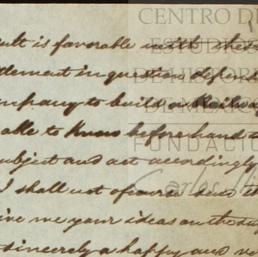 CENTRO DE
ESTUDIOS
DE HISTORIA
DE MEXICO
FUNDACIÓN
Carlos
ult is favorable with the
tlement in question depend
ompany to build a Railway
able to know beforehand
ubject and act accordingly
I shall not of course
ive me your ideas on the
sincerely a happy and